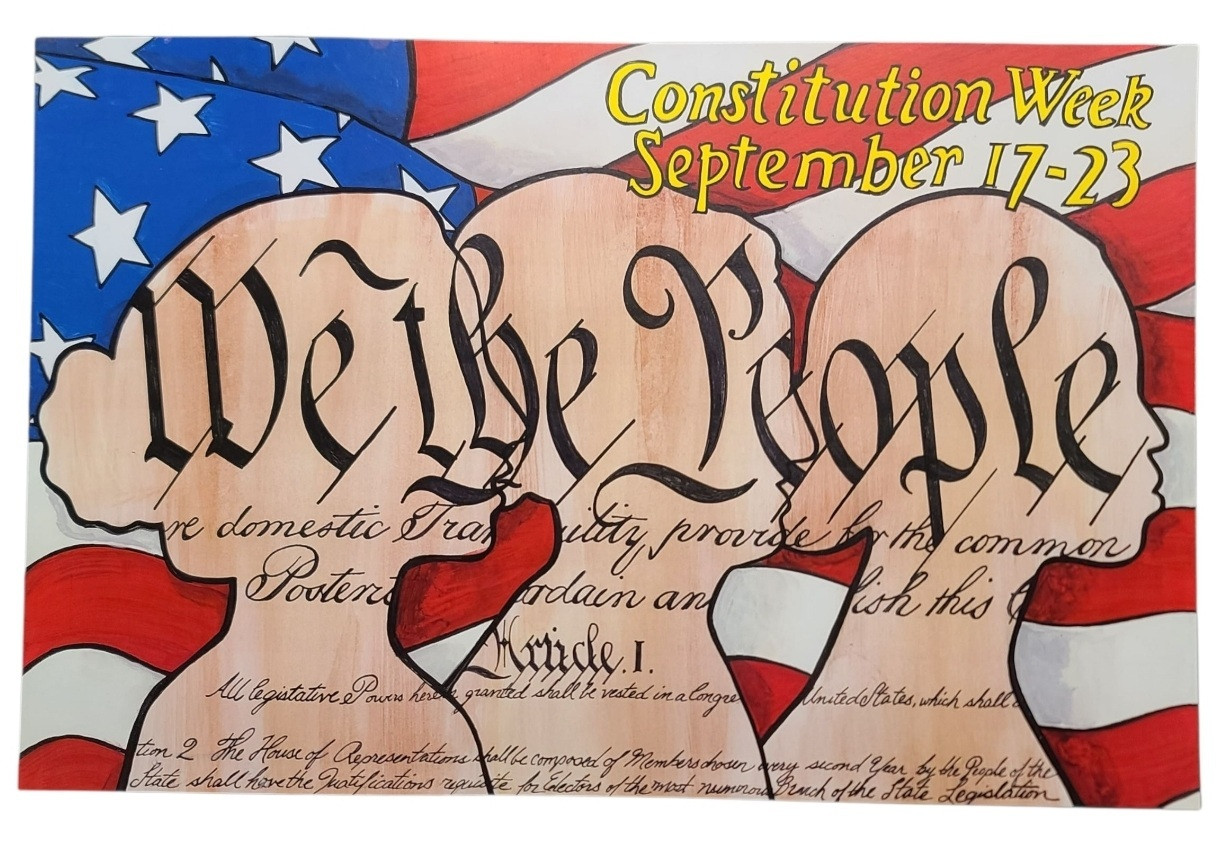 Constitution Week
September 17-23
We the People
re domestic Tran uility, provide for the common
Posteri ordain an lish this C
Article. I.
All legistative Powers herein granted shall be vested in a Congre United States, which shall b
tion 2 The House of Representations shall be composed of Members chosen every second Year by the People of the
State shall have the Qualifications requisite for Electors of the most numerous Branch of the State Legislation